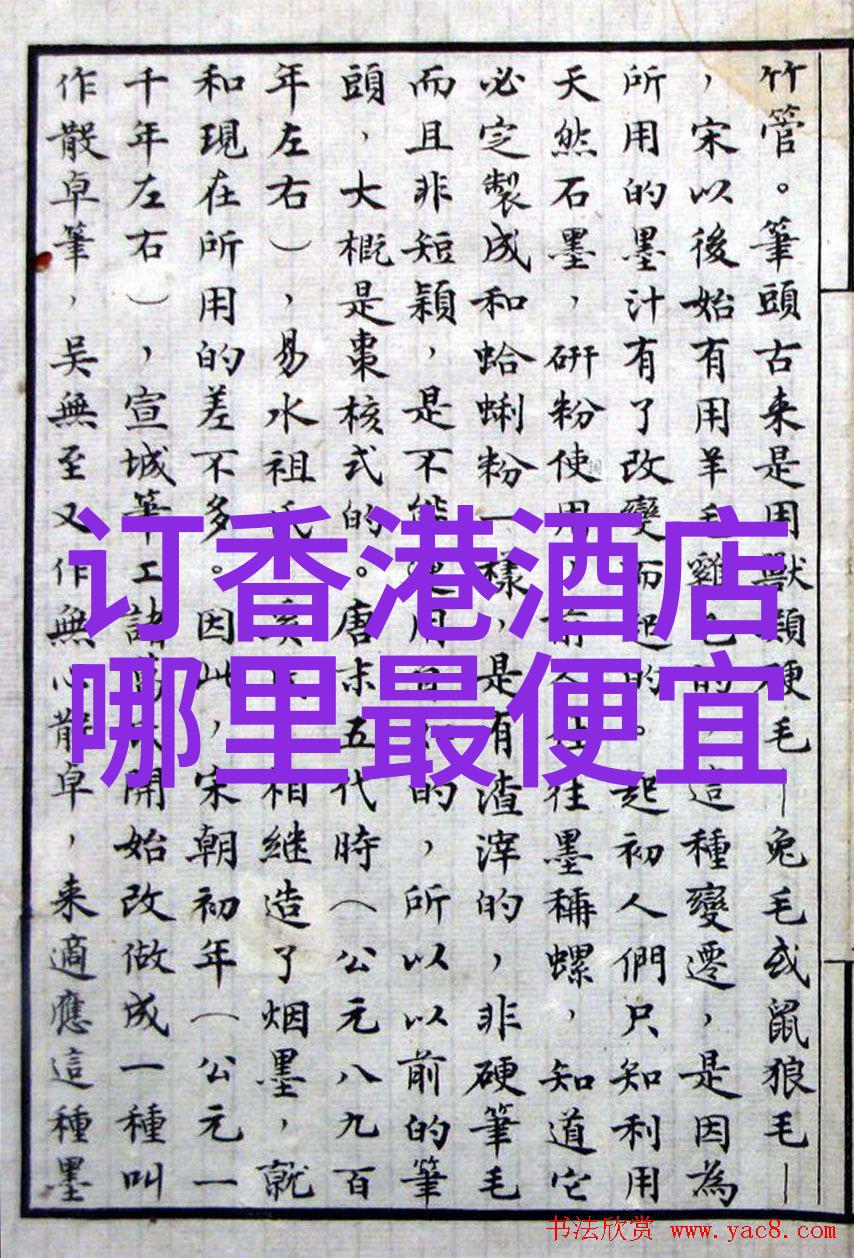 竹管。筆頭古来是用獸類硬毛—兔毛或鼠狼毛—
，宋以後始有用羊毛雞毛的，這種變遷，是因為
所用的墨汁有了改變而起的。起初人們只知利用
天然石墨，研粉使用，前人往往墨稱螺，知道它
必定製成和蛤蜊粉一樣，是有渣滓的，非硬筆毛
而且非短穎，是不能用的，所以以前的筆
頭，大概是棗核式的。唐末五代時（公元八九百
年左右），易水祖氏相继造了烟墨，就
和現在所用的差不多。因此，宋朝初年（公元一
千年左右），宣城筆工諸開始改做成一種叫
作散卓筆，吳無至又作無心散卓，来適應這種墨
订香港酒店
哪里最便宜
书法欣赏 www.yac8.com